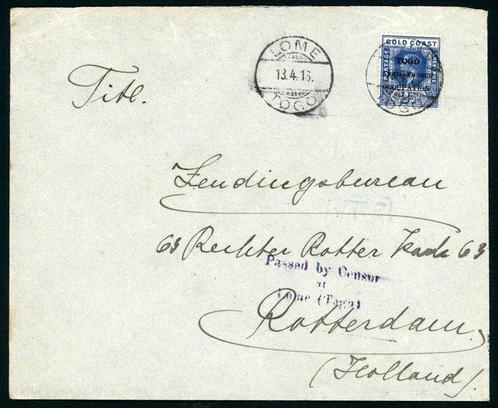 LOME
13.4.16.
TOGO
GOLD COAST
TOGO
ANGLO-FRENCH
OCCUPATION
Titl.
Zendingsbureau
63 Rechter Rotter Kade 63
Passed by Censor
at
Lome (Togo)
Rotterdam.
(Holland)